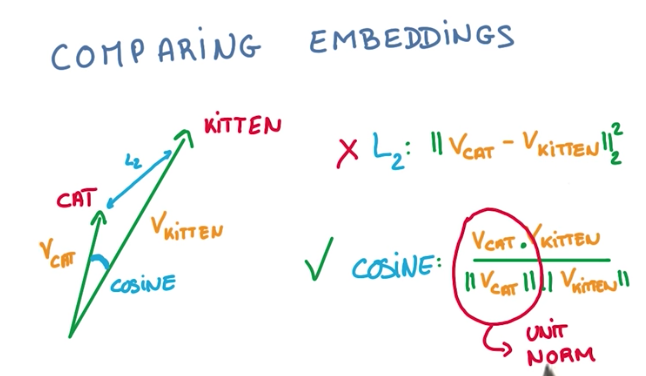 COMPARING EMBEDDINGS
KITTEN
L2
CAT
VCAT
VKITTEN
COSINE
X L2: || VCAT - VKITTEN ||²₂
✓ COSINE: VCAT . VKITTEN
|| VCAT || . || VKITTEN ||
UNIT
NORM